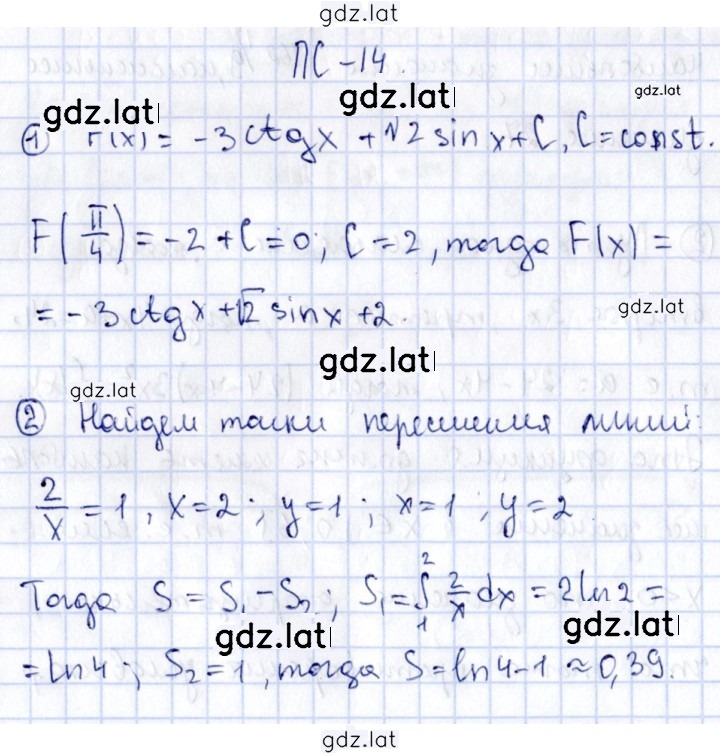 gdz.lat
ПС-14.
gdz.lat
gdz.lat
gdz.lat
① F(x) = -3ctgx + √2 sinx + C, C = const.
F(π/4) = -2 + C = 0; C = 2, тогда F(x) =
= -3ctgx + √2 sinx + 2.
gdz.lat
gdz.lat
gdz.lat
② Найдем точки пересечения линий:
2/x = 1, x = 2; y = 1; x = 1; y = 2
Тогда S = S₁ - S₂; S₁ = ∫₁² 2/x dx = 2ln2 =
gdz.lat
gdz.lat
= ln4; S₂ = 1, тогда S = ln4 - 1 ≈ 0,39.
gdz.lat